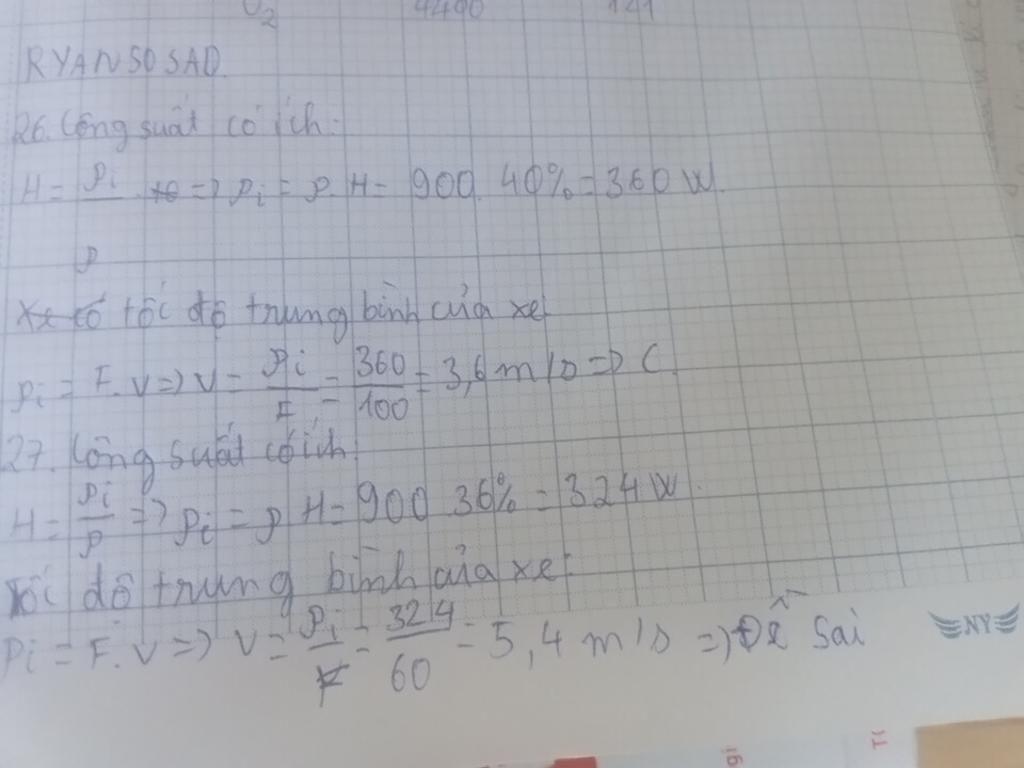 O2 4400 121
RYANSOSAD.
26. Công suất có ích:
H = Pi/P => Pi = P. H = 900. 40% = 360 W.
tốc độ trung bình của xe
Pi = F. V => V = Pi/F = 360/100 = 3,6 m/s => C.
27. Công suất có ích:
H = Pi/P => Pi = P H = 900 36% = 324 W.
Tốc độ trung bình của xe:
Pi = F. V => V = Pi/F = 324/60 = 5,4 m/s => Đề Sai
NY
11